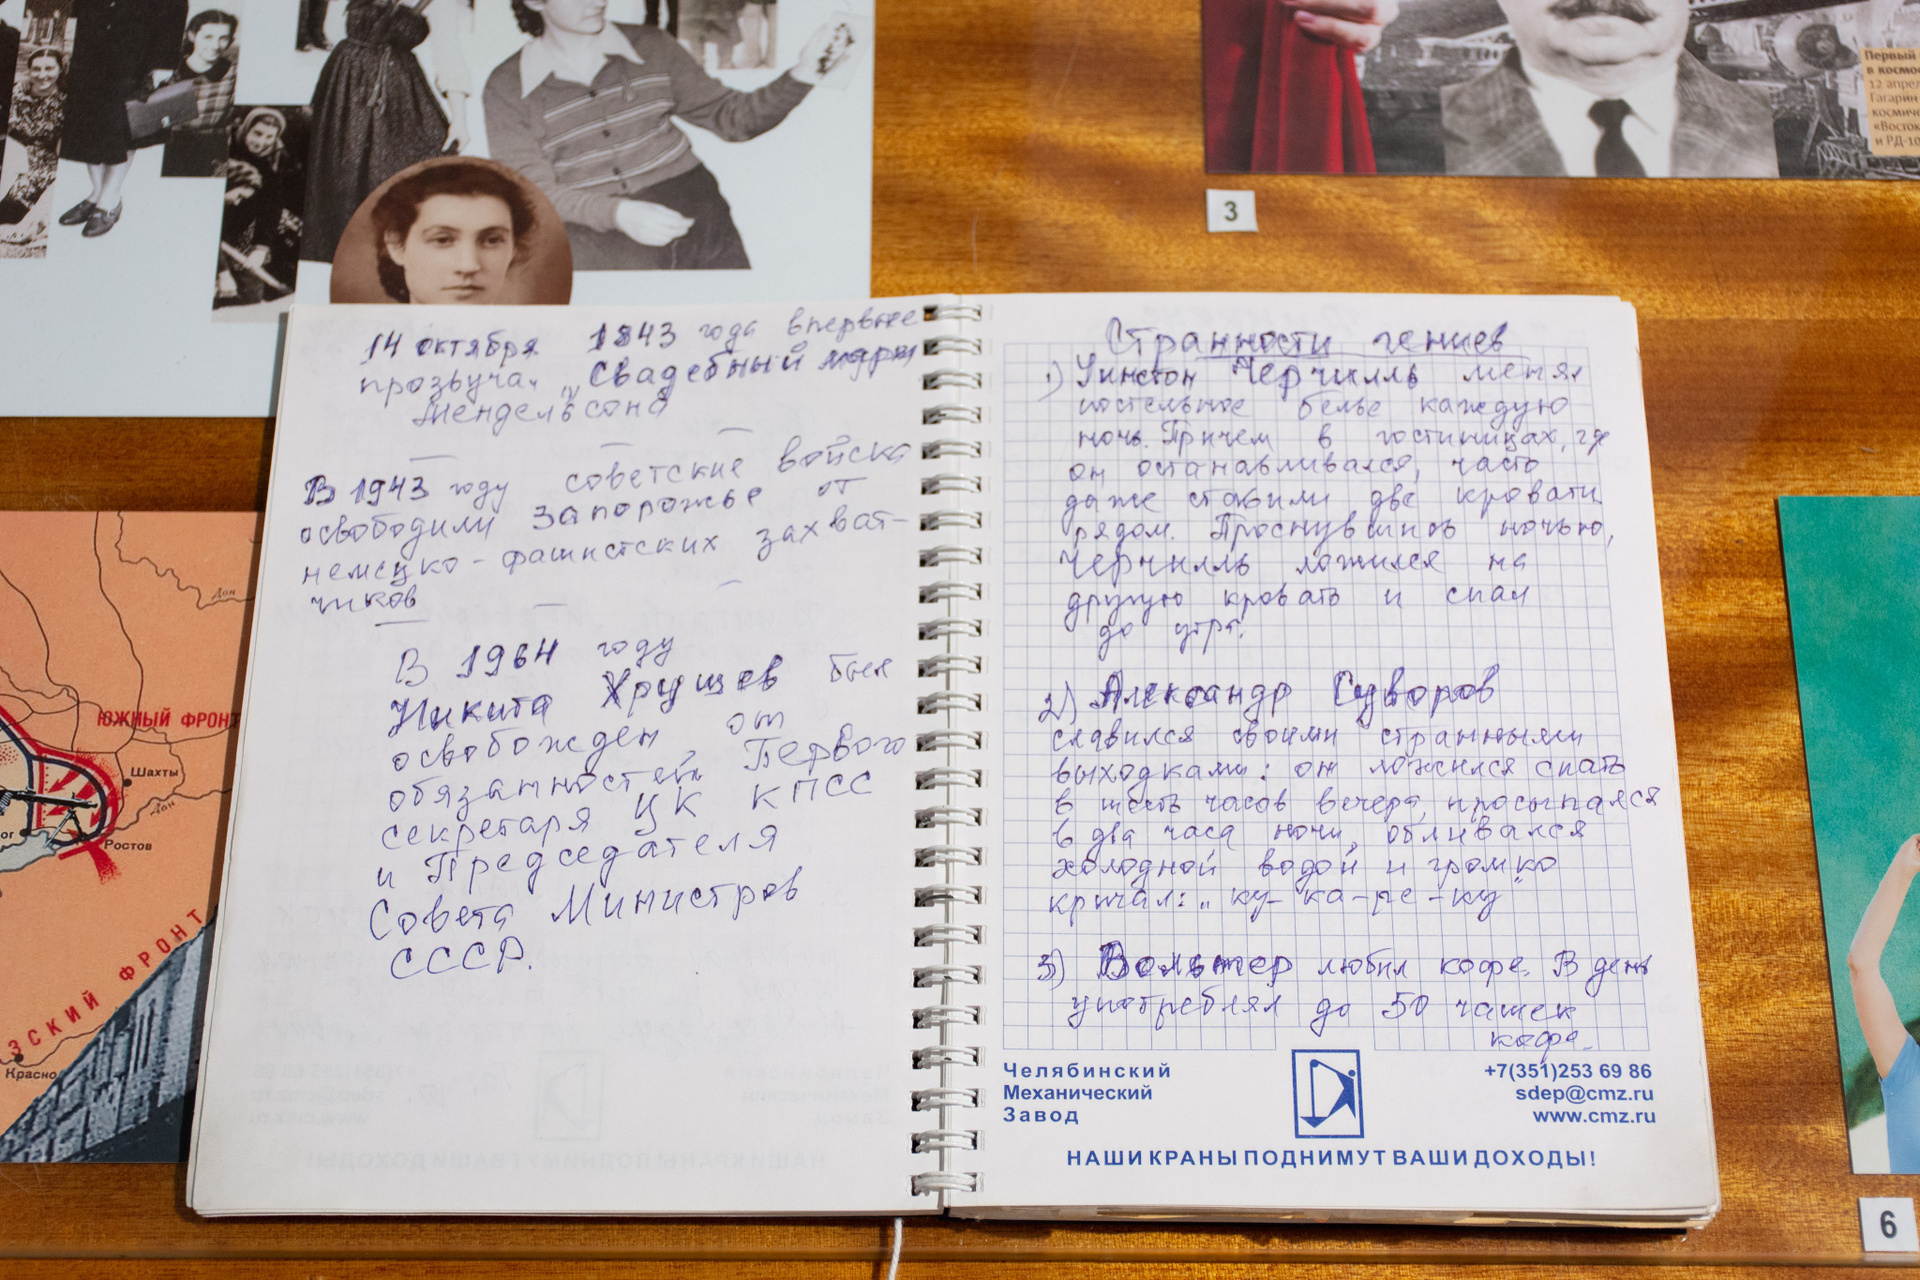 Первый
в космос
12 апрел
Гагарин
космиче
«Восток
и РД-10
3
14 октября 1843 года впервые
прозвучал „Свадебный марш
Мендельсона
В 1943 году советские войска
освободили Запорожье от
немецко-фашистских захват-
чиков
В 1964 году
Никита Хрущев был
освобожден от
обязанностей Первого
секретаря ЦК КПСС
и Председателя
Совета Министров
СССР.
Странности гениев
1) Уинстон Черчилль менял
постельное белье каждую
ночь. Причем в гостиницах, где
он останавливался, часто
даже ставили две кровати
рядом. Проснувшись ночью,
Черчилль ложился на
другую кровать и спал
до утра.
2) Александр Суворов
славился своими странными
выходками: он ложился спать
в шесть часов вечера, просыпался
в два часа ночи, обливался
холодной водой и громко
кричал: „ку-ка-ре-ку"
3) Вольтер любил кофе. В день
употреблял до 50 чашек
кофе.
Челябинский
Механический
Завод
+7(351)253 69 86
sdep@cmz.ru
www.cmz.ru
НАШИ КРАНЫ ПОДНИМУТ ВАШИ ДОХОДЫ!
ЮЖНЫЙ ФРОНТ
Дон
Шахты
Дон
Ростов
ЗСКИЙ ФРОНТ
Красно
6